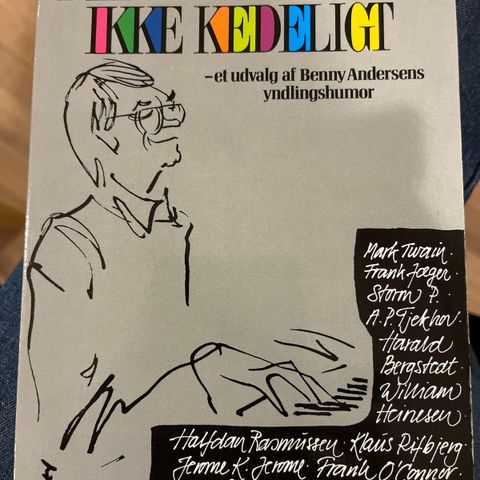 IKKE KEDELIGT
– et udvalg af Benny Andersens
yndlingshumor
Mark Twain ·
Frank Jæger ·
Storm P. ·
A.P. Tjekhov ·
Harald
Bergstedt ·
William
Heinesen ·
Halfdan Rasmussen · Klaus Rifbjerg ·
Jerome K. Jerome · Frank O'Connor ·